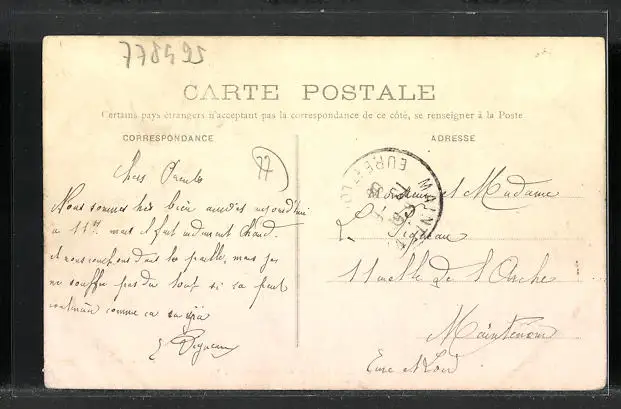 778495
CARTE POSTALE
Certains pays étrangers n'acceptant pas la correspondance de ce côté, se renseigner à la Poste
CORRESPONDANCE
ADRESSE
77
Chers Parents
Nous sommes très bien arrivés aujourd'hui
a 11h mais il fait rudement chaud.
et nous couchons dans la paille, mais je
ne souffre pas du tout si ca peut
continuer comme ca
MAINTENON
EURE-ET-LOIR
Monsieur et Madame
ruelle de l'Arche
Maintenon
Eure et Loir